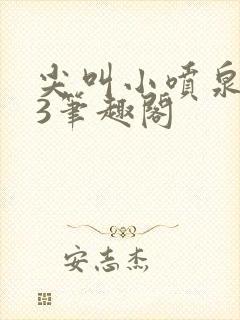 尖叫小喷泉
3笔趣阁
安志杰